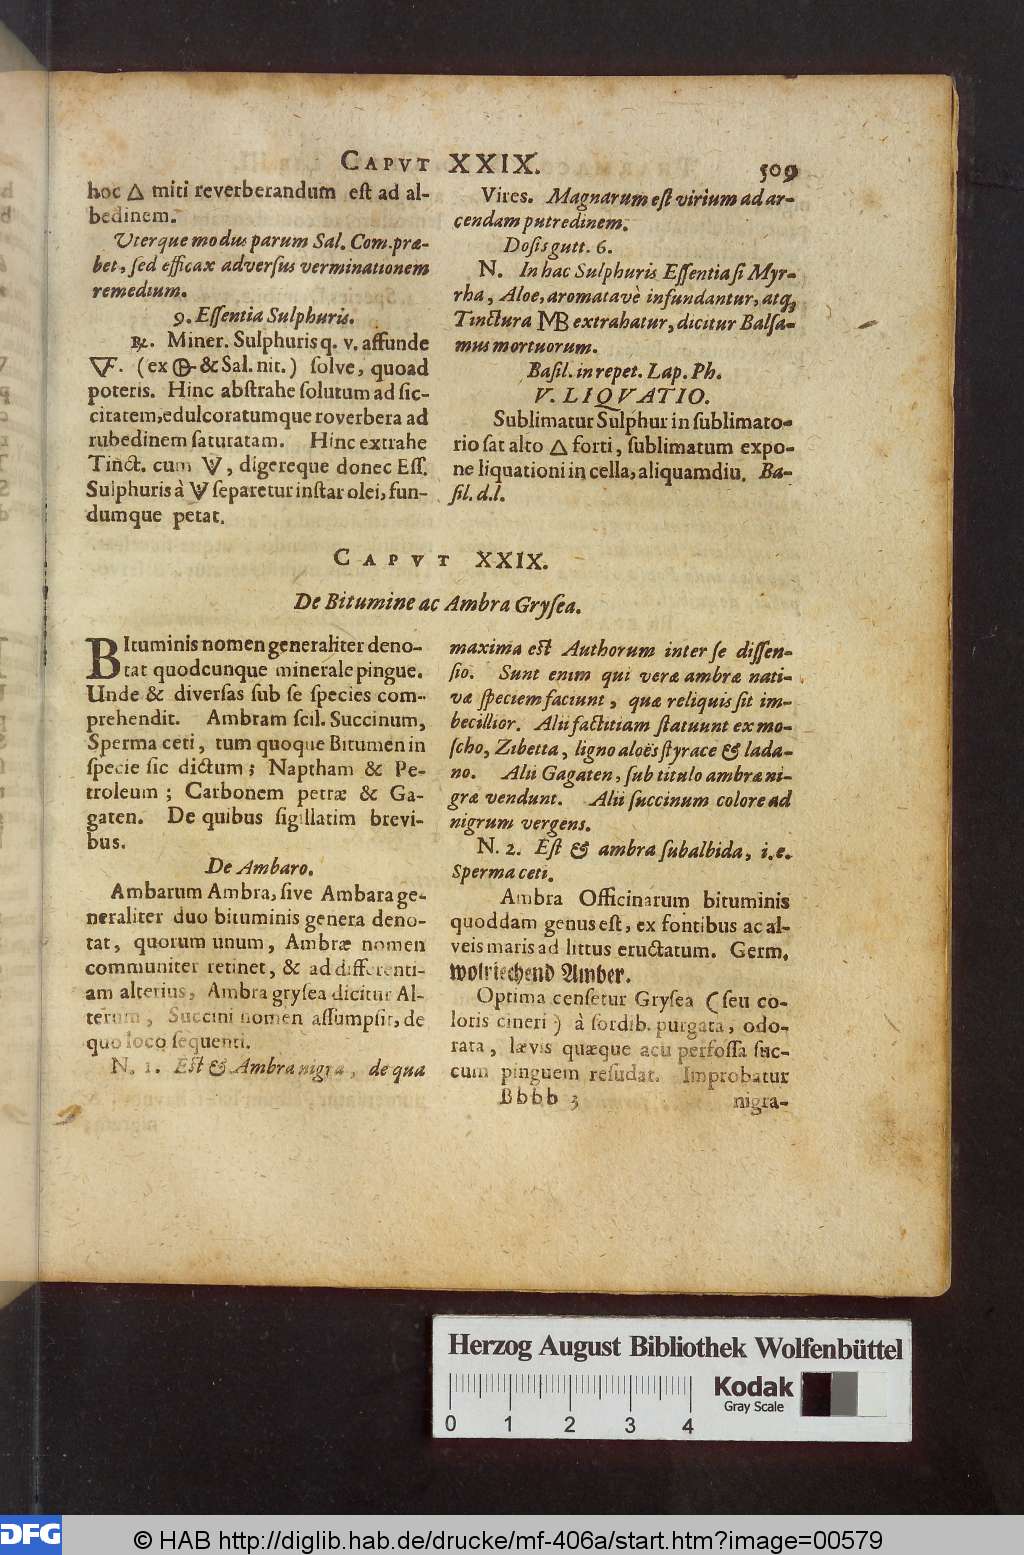 CAPVT XXIX. 509
hoc 🜂 miti reverberandum est ad al-
bedinem.
Uterque modus parum Sal. Com. præ-
bet, sed efficax adversus verminationem
remedium.
9. Essentia Sulphuris.
℞. Miner. Sulphuris q. v. affunde
🜅. (ex 🜖 & Sal. nit.) solve, quoad
poteris. Hinc abstrahe solutum ad sic-
citatem, edulcoratumque roverbera ad
rubedinem saturatam. Hinc extrahe
Tinct. cum 🜈, digereque donec Ess.
Sulphuris à 🜈 separetur instar olei, fun-
dumque petat.
Vires. Magnarum est virium ad ar-
cendam putredinem.
Dosis gutt. 6.
N. In hac Sulphuris Essentia si Myr-
rha, Aloe, aromatavè infundantur, atq;
Tinctura MB extrahatur, dicitur Balsa-
mus mortuorum.
Basil. in repet. Lap. Ph.
V. LIQVATIO.
Sublimatur Sulphur in sublimato-
rio sat alto 🜂 forti, sublimatum expo-
ne liquationi in cella, aliquamdiu. Ba-
sil. d. l.
CAPVT XXIX.
De Bitumine ac Ambra Grysea.
BItuminis nomen generaliter deno-
tat quodcunque minerale pingue.
Unde & diversas sub se species com-
prehendit. Ambram scil. Succinum,
Sperma ceti, tum quoque Bitumen in
specie sic dictum; Naptham & Pe-
troleum; Carbonem petræ & Ga-
gaten. De quibus sigillatim brevi-
bus.
De Ambaro.
Ambarum Ambra, sive Ambara ge-
neraliter duo bituminis genera deno-
tat, quorum unum, Ambræ nomen
communiter retinet, & ad differenti-
am alterius, Ambra grysea dicitur Al-
terum, Succini nomen assumpsit, de
quo loco sequenti.
N. 1. Est & Ambra nigra, de qua
maxima est Authorum inter se dissen-
sio. Sunt enim qui veræ ambræ nati-
væ speciem faciunt, quæ reliquis sit im-
becillior. Alii factitiam statuunt ex mo-
scho, Zibetta, ligno aloës styrace & lada-
no. Alii Gagaten, sub titulo ambræ ni-
græ vendunt. Alii succinum colore ad
nigrum vergens.
N. 2. Est & ambra subalbida, i.e.
Sperma ceti.
Ambra Officinarum bituminis
quoddam genus est, ex fontibus ac al-
veis maris ad littus eructatum. Germ.
wolriechend Amber.
Optima censetur Grysea (seu co-
loris cineri) à sordib. purgata, odo-
rata, lævis quæque acu perfossa suc-
cum pinguem resudat. Improbatur
Bbbb 3 nigra-
Herzog August Bibliothek Wolfenbüttel
Kodak
Gray Scale
0 1 2 3 4
DFG
© HAB http://diglib.hab.de/drucke/mf-406a/start.htm?image=00579